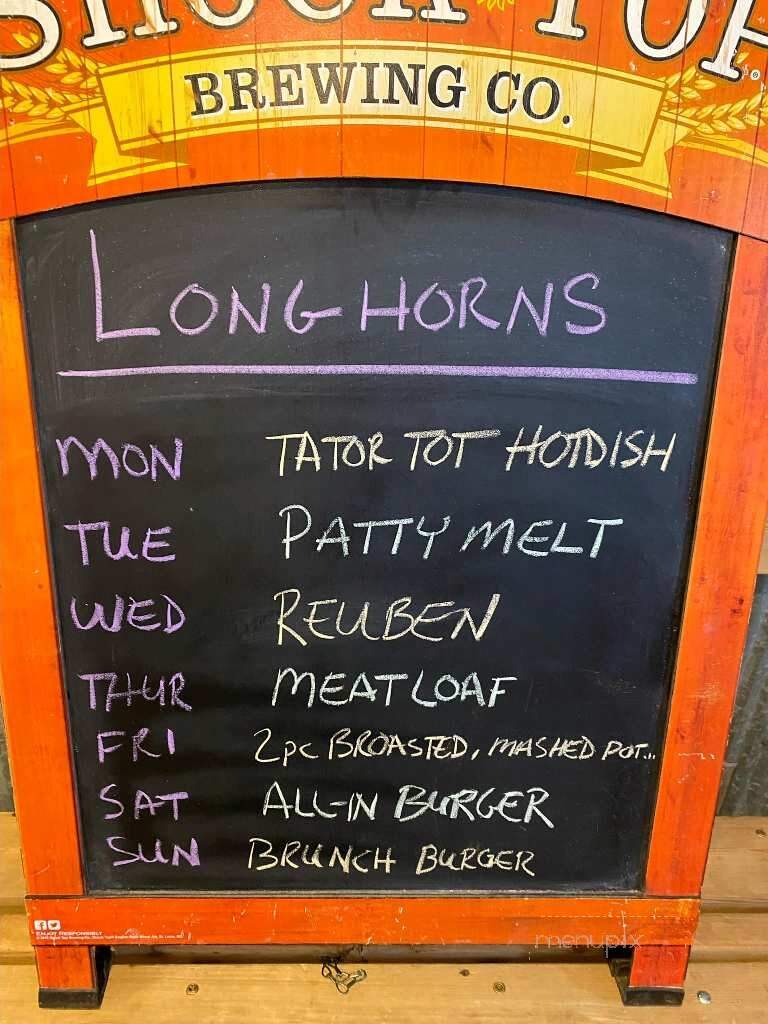 SHOCK TOP
BREWING CO.
LONGHORNS
MON TATOR TOT HOTDISH
TUE PATTY MELT
WED REUBEN
THUR MEATLOAF
FRI 2pc BROASTED, MASHED POT...
SAT ALL-IN BURGER
SUN BRUNCH BURGER
ENJOY RESPONSIBLY
menupix